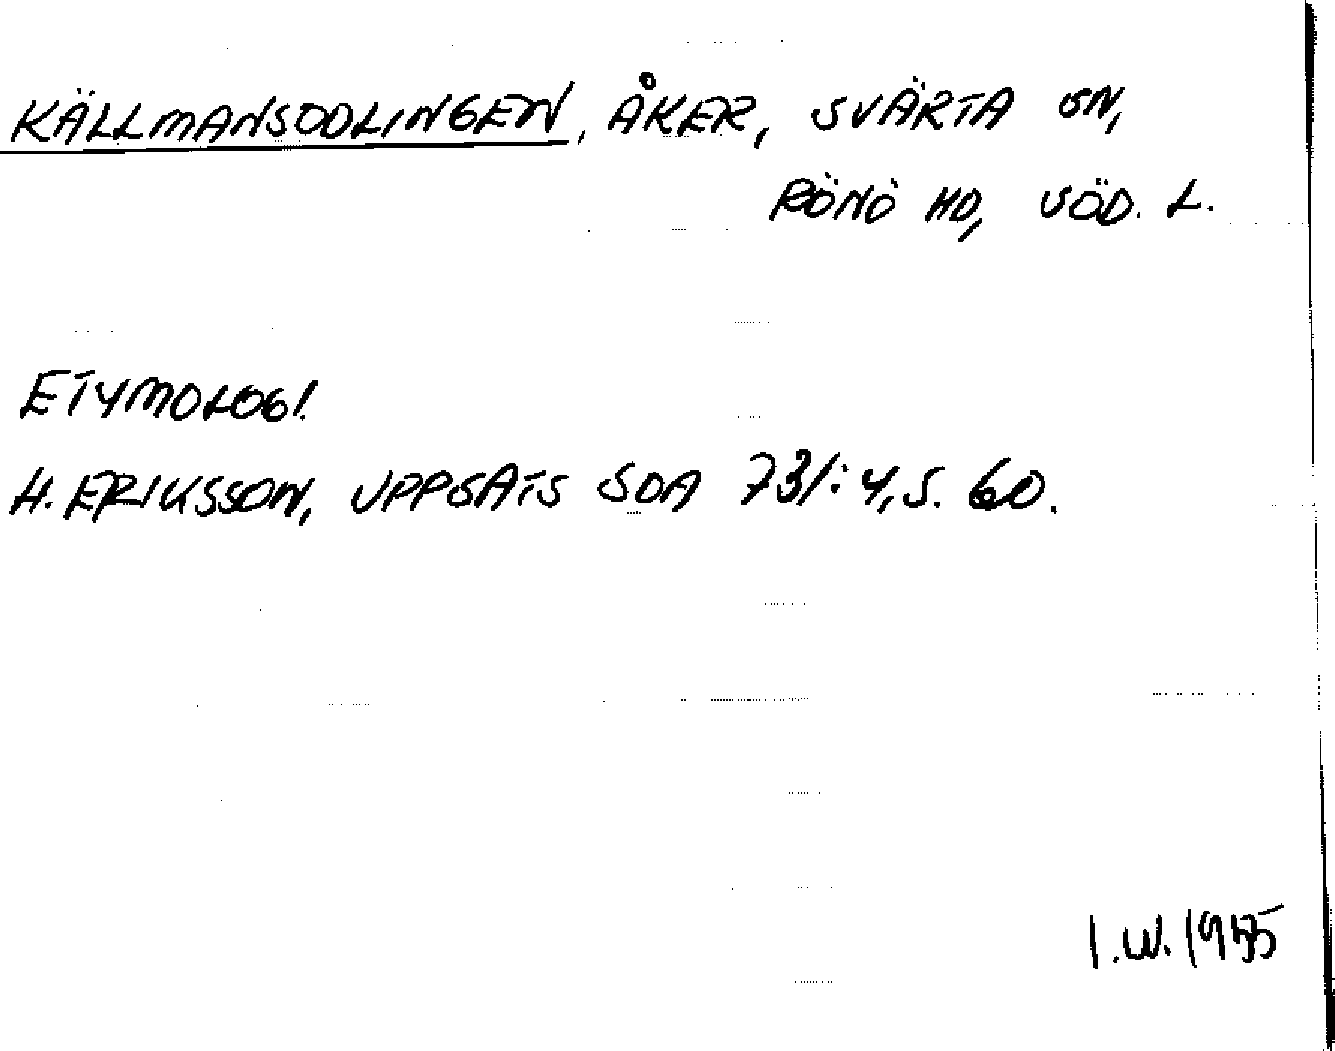 KÄLLMANSODLINGEN, ÅKER, SVÄRTA SN,
RÖNÖ HD, SÖD. L.
ETYMOLOGI.
H. ERIKSSON, UPPSATS SOA 731:4, S. 60.
I.W.